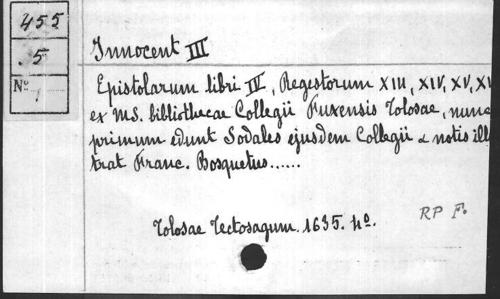 455
5
Nº 1
Innocent III
Epistolarum libri IV, Regestorum XIII, XIV, XV, XV
ex ms. bibliothecae Collegii Fuxensis Tolosae, nunc
primum edunt Sodales ejusdem Collegii & notis ill
trat Franc. Bosquetus......
Tolosae Tectosagum. 1635. 4o.
RP F.